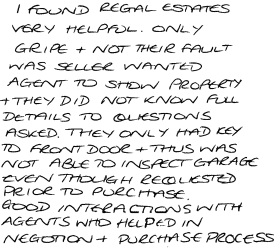 I FOUND REGAL ESTATES
VERY HELPFUL. ONLY
GRIPE + NOT THEIR FAULT
WAS SELLER WANTED
AGENT TO SHOW PROPERTY
+ THEY DID NOT KNOW FULL
DETAILS TO QUESTIONS
ASKED. THEY ONLY HAD KEY
TO FRONT DOOR + THUS WAS
NOT ABLE TO INSPECT GARAGE
EVEN THOUGH REQUESTED
PRIOR TO PURCHASE.
GOOD INTERACTIONS WITH
AGENTS WHO HELPED IN
NEGOTION + PURCHASE PROCESS